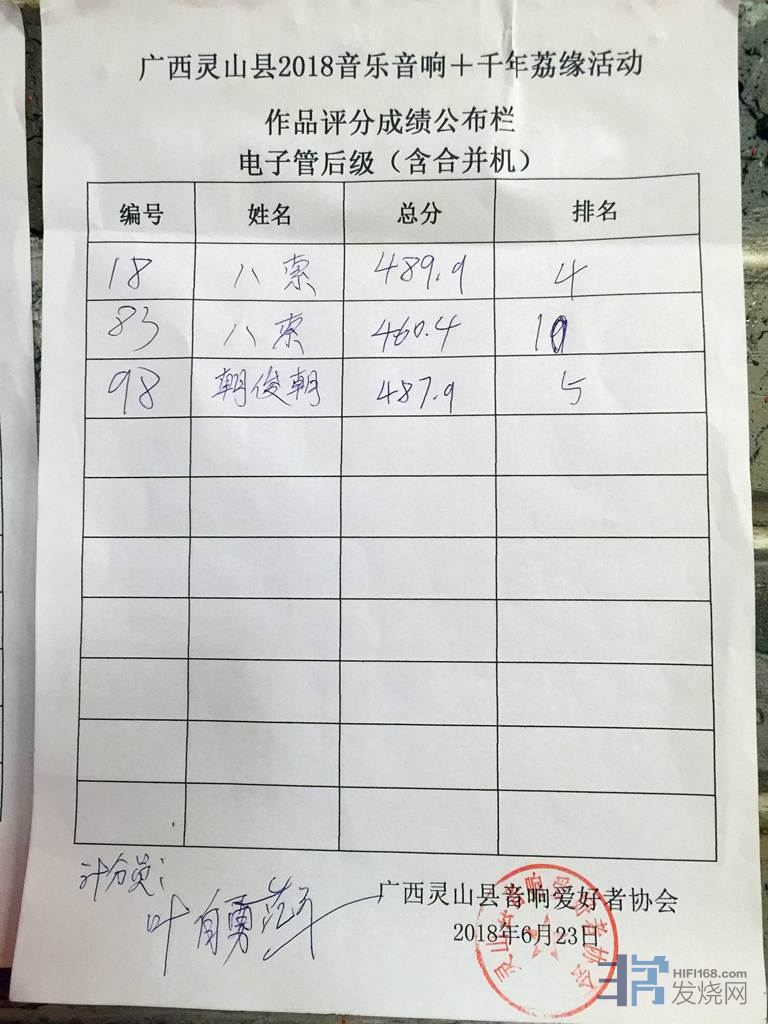 广西灵山县2018音乐音响＋千年荔缘活动
作品评分成绩公布栏
电子管后级（含合并机）
编号 姓名 总分 排名
18 八索 489.9 4
83 八索 460.4 10
98 朝俊朝 487.9 5
计分员：
叶自勇
广西灵山县音响爱好者协会
2018年6月23日
灵山县音响爱好者协会
HIFI168.com
发烧网